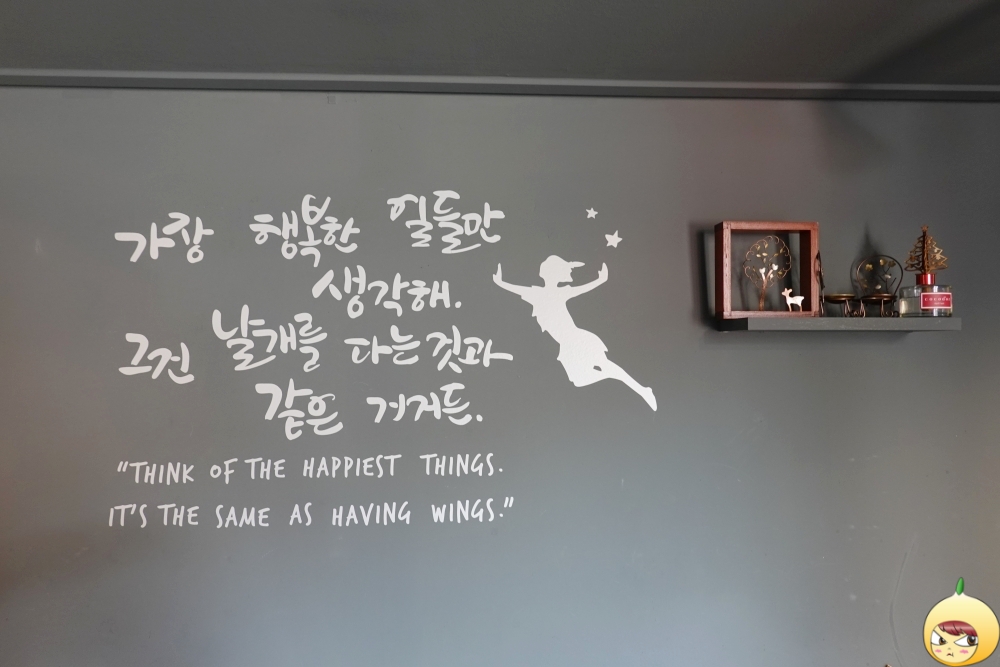 가장 행복한 일들만
생각해.
그건 날개를 다는것과
같은 거거든.
"THINK OF THE HAPPIEST THINGS.
IT'S THE SAME AS HAVING WINGS."
cocodor